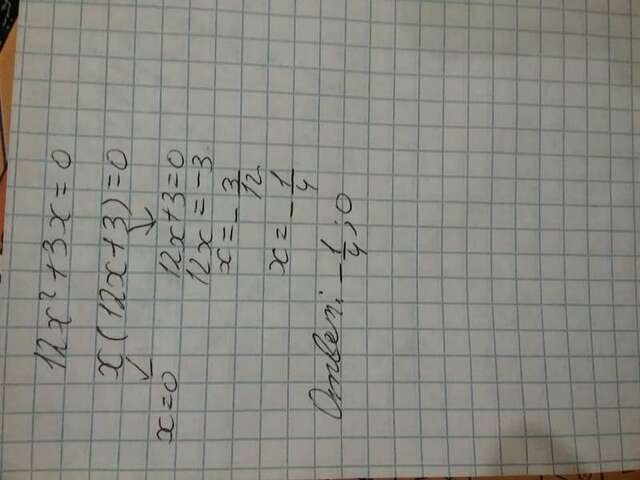 12x² + 3x = 0
x(12x+3)=0
x=0
12x+3=0
12x = -3
x = - 3/12
x = - 1/4
Ответ: - 1/4; 0